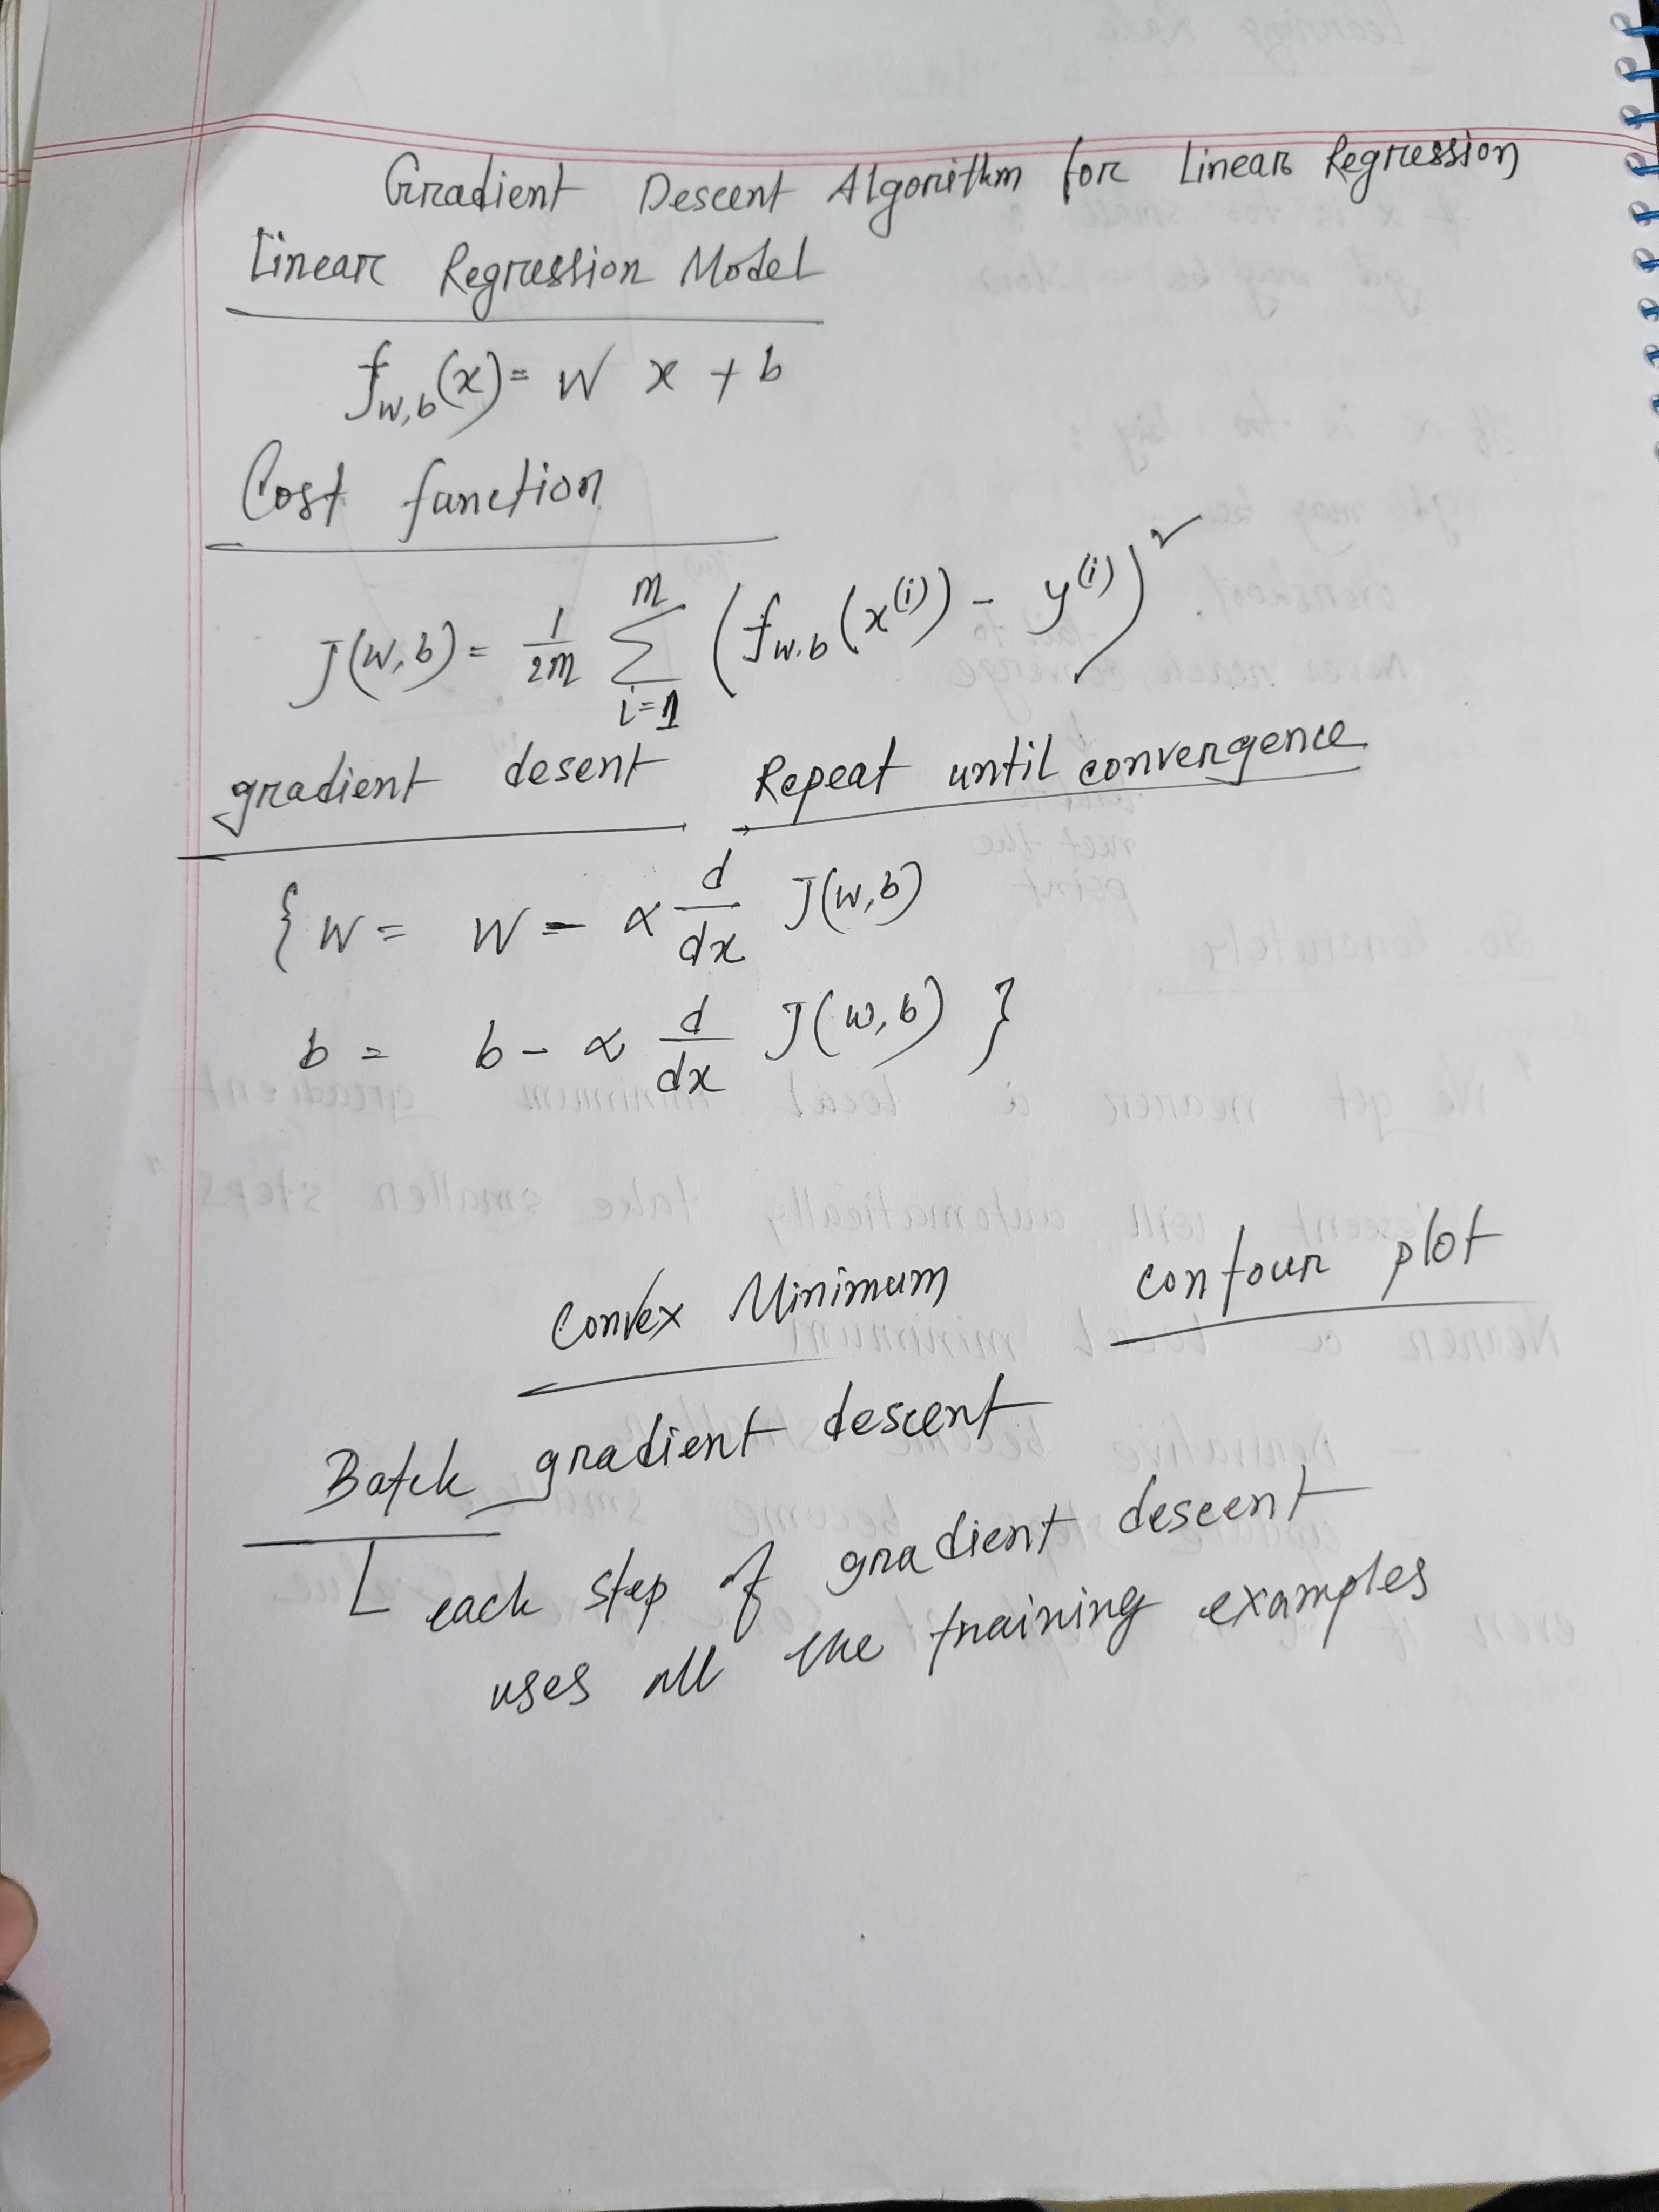 Gradient Descent Algorithm for Linear Regression
Linear Regression Model
f_{w,b}(x) = W x + b
Cost function
J(w,b) = \frac{1}{2m} \sum_{i=1}^{m} (f_{w,b}(x^{(i)}) - y^{(i)})^2
gradient desent Repeat until convergence
{ W = W - α \frac{d}{dx} J(w,b)
b = b - α \frac{d}{dx} J(w,b) }
Convex Minimum contour plot
Batch gradient descent
each step of gradient descent
uses all the training examples